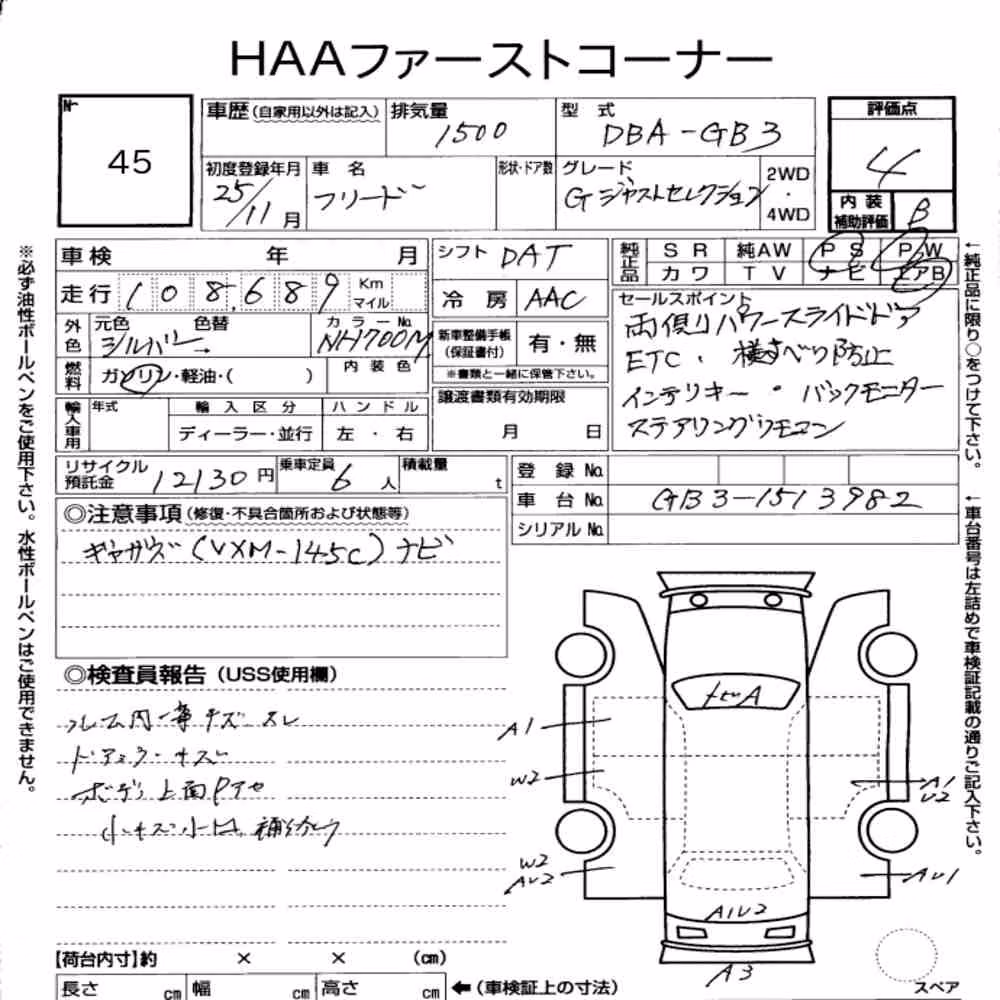 HAAファーストコーナー
№ 45
車歴(自家用以外は記入) 排気量 1500 型式 DBA-GB3 評価点 4
初度登録年月 25/11月 車名 フリード 形状・ドア数 グレード Gジャストセレクション 2WD・4WD 内装補助評価 B
車検 年 月 シフト DAT 純正品 SR 純AW PS PW
カワ TV ナビ エアB
走行 108,689 Km マイル 冷房 AAC
セールスポイント
両側パワースライドドア
ETC・横すべり防止
インテリキー・バックモニター
ステアリングリモコン
外色 元色 シルバー 色替 → カラーNo. NH700M 新車整備手帳(保証書付) 有・無
※書類と一緒に保管下さい。
燃料 ガソリン・軽油・( ) 内装色
譲渡書類有効期限
月 日
輸入車用 年式 輸入区分 ハンドル
ディーラー・並行 左・右
リサイクル預託金 12130円 乗車定員 6人 積載量 t 登録No.
車台No. GB3-1513982
シリアルNo.
◎注意事項(修復・不具合箇所および状態等)
ギャザズ(VXM-145C)ナビ
◎検査員報告(USS使用欄)
キズ スレ
ボディ上面
小キズ小凹 補修
A
A1
W2
W2
AU2
A1
U2
AU1
A1U2
A3
スペア
【荷台内寸】約 × × (cm)
長さ cm 幅 cm 高さ cm ←(車検証上の寸法)
※必ず油性ボールペンをご使用下さい。水性ボールペンはご使用できません。
←純正品に限り○をつけて下さい。
←車台番号は左詰めで車検証記載の通りご記入下さい。